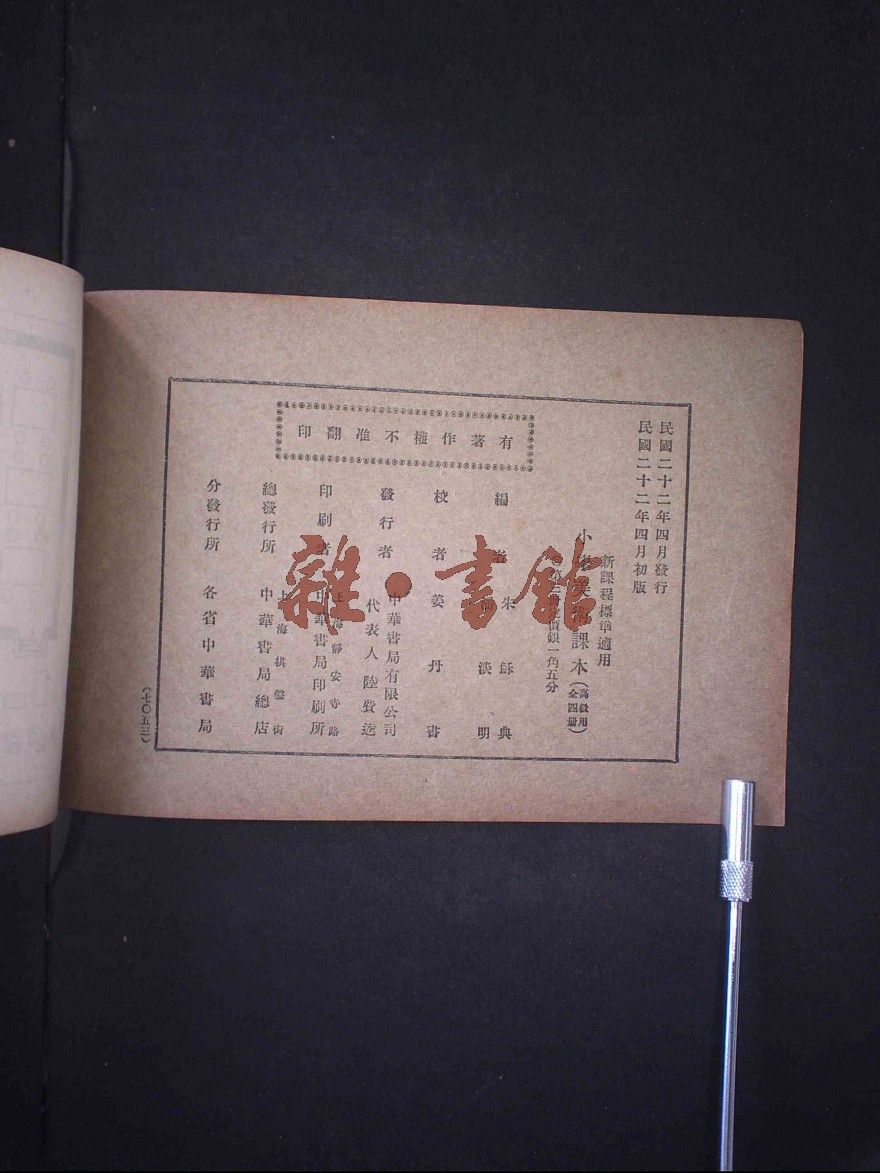 民國二十二年四月發行
民國二十二年四月初版
新課程標準適用
小學美術課本（高級用全四册）
冊定價銀一角五分
有著作權不准翻印
編者 朱穌典
淡明
校者 姜丹書
發行者 中華書局有限公司
代表人 陸費逵
印刷者 上海靜安寺路
中華書局印刷所
總發行所 上海棋盤街
中華書局總店
分發行所 各省中華書局
（七〇五三）
雜·書館